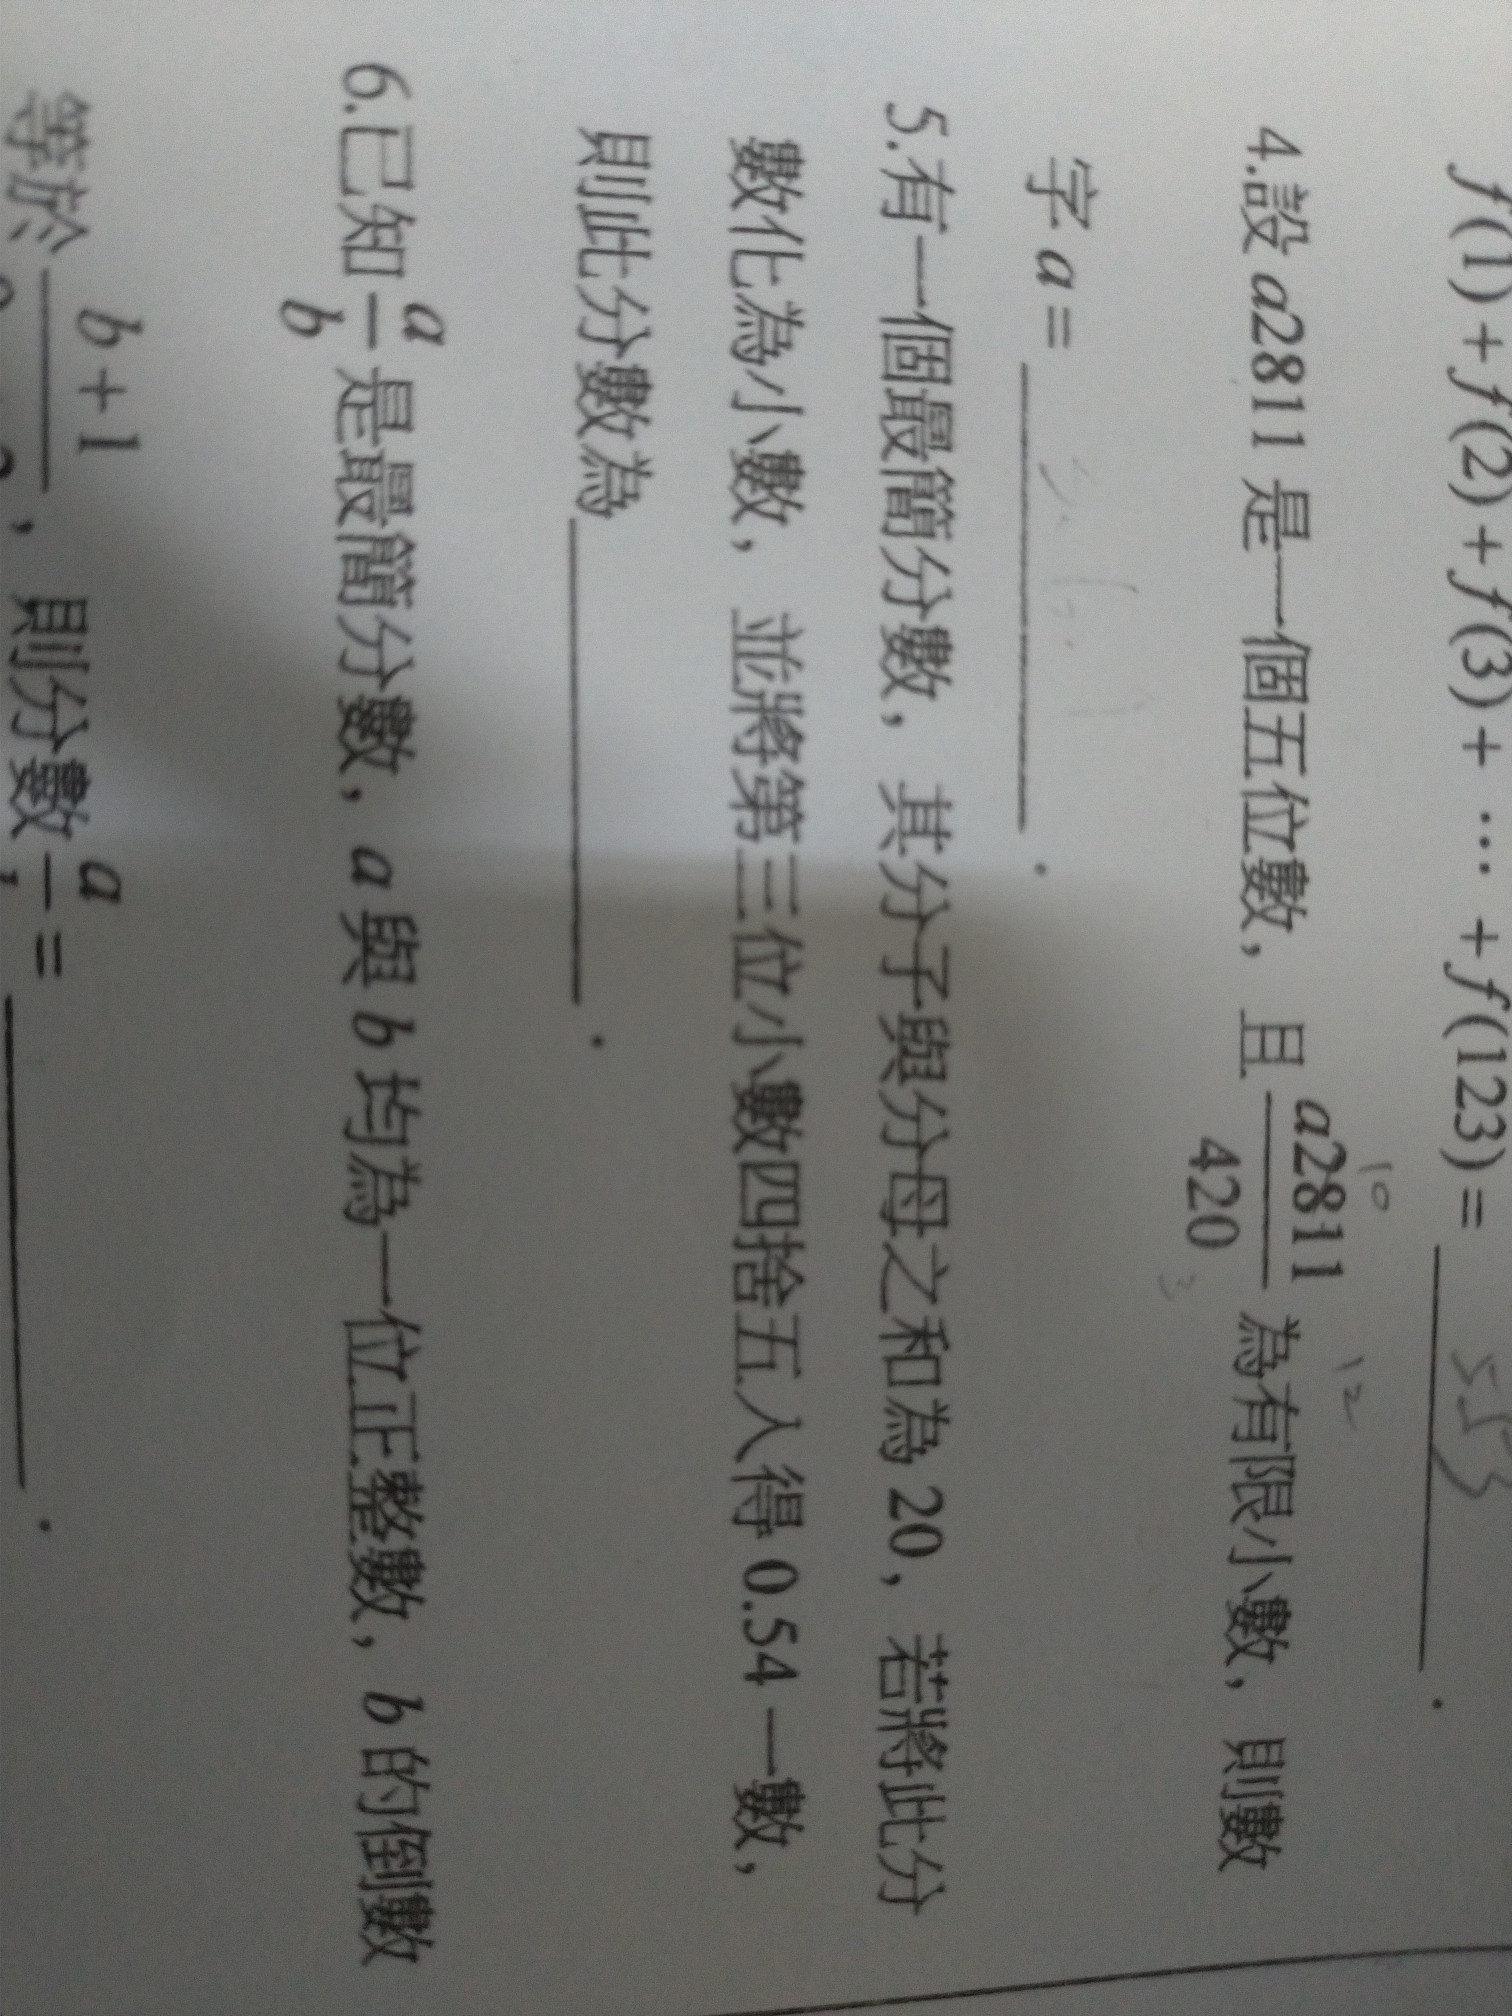 f(1)+f(2)+f(3)+ … +f(123)= 553 .
10 12
4.設 a2811 是一個五位數，且 a2811/420 為有限小數，則數
3
字 a= .
5.有一個最簡分數，其分子與分母之和為 20，若將此分
數化為小數，並將第三位小數四捨五入得 0.54 一數，
則此分數為 .
6.已知 a/b 是最簡分數，a 與 b 均為一位正整數，b 的倒數
等於 b+1 ，則分數 a =